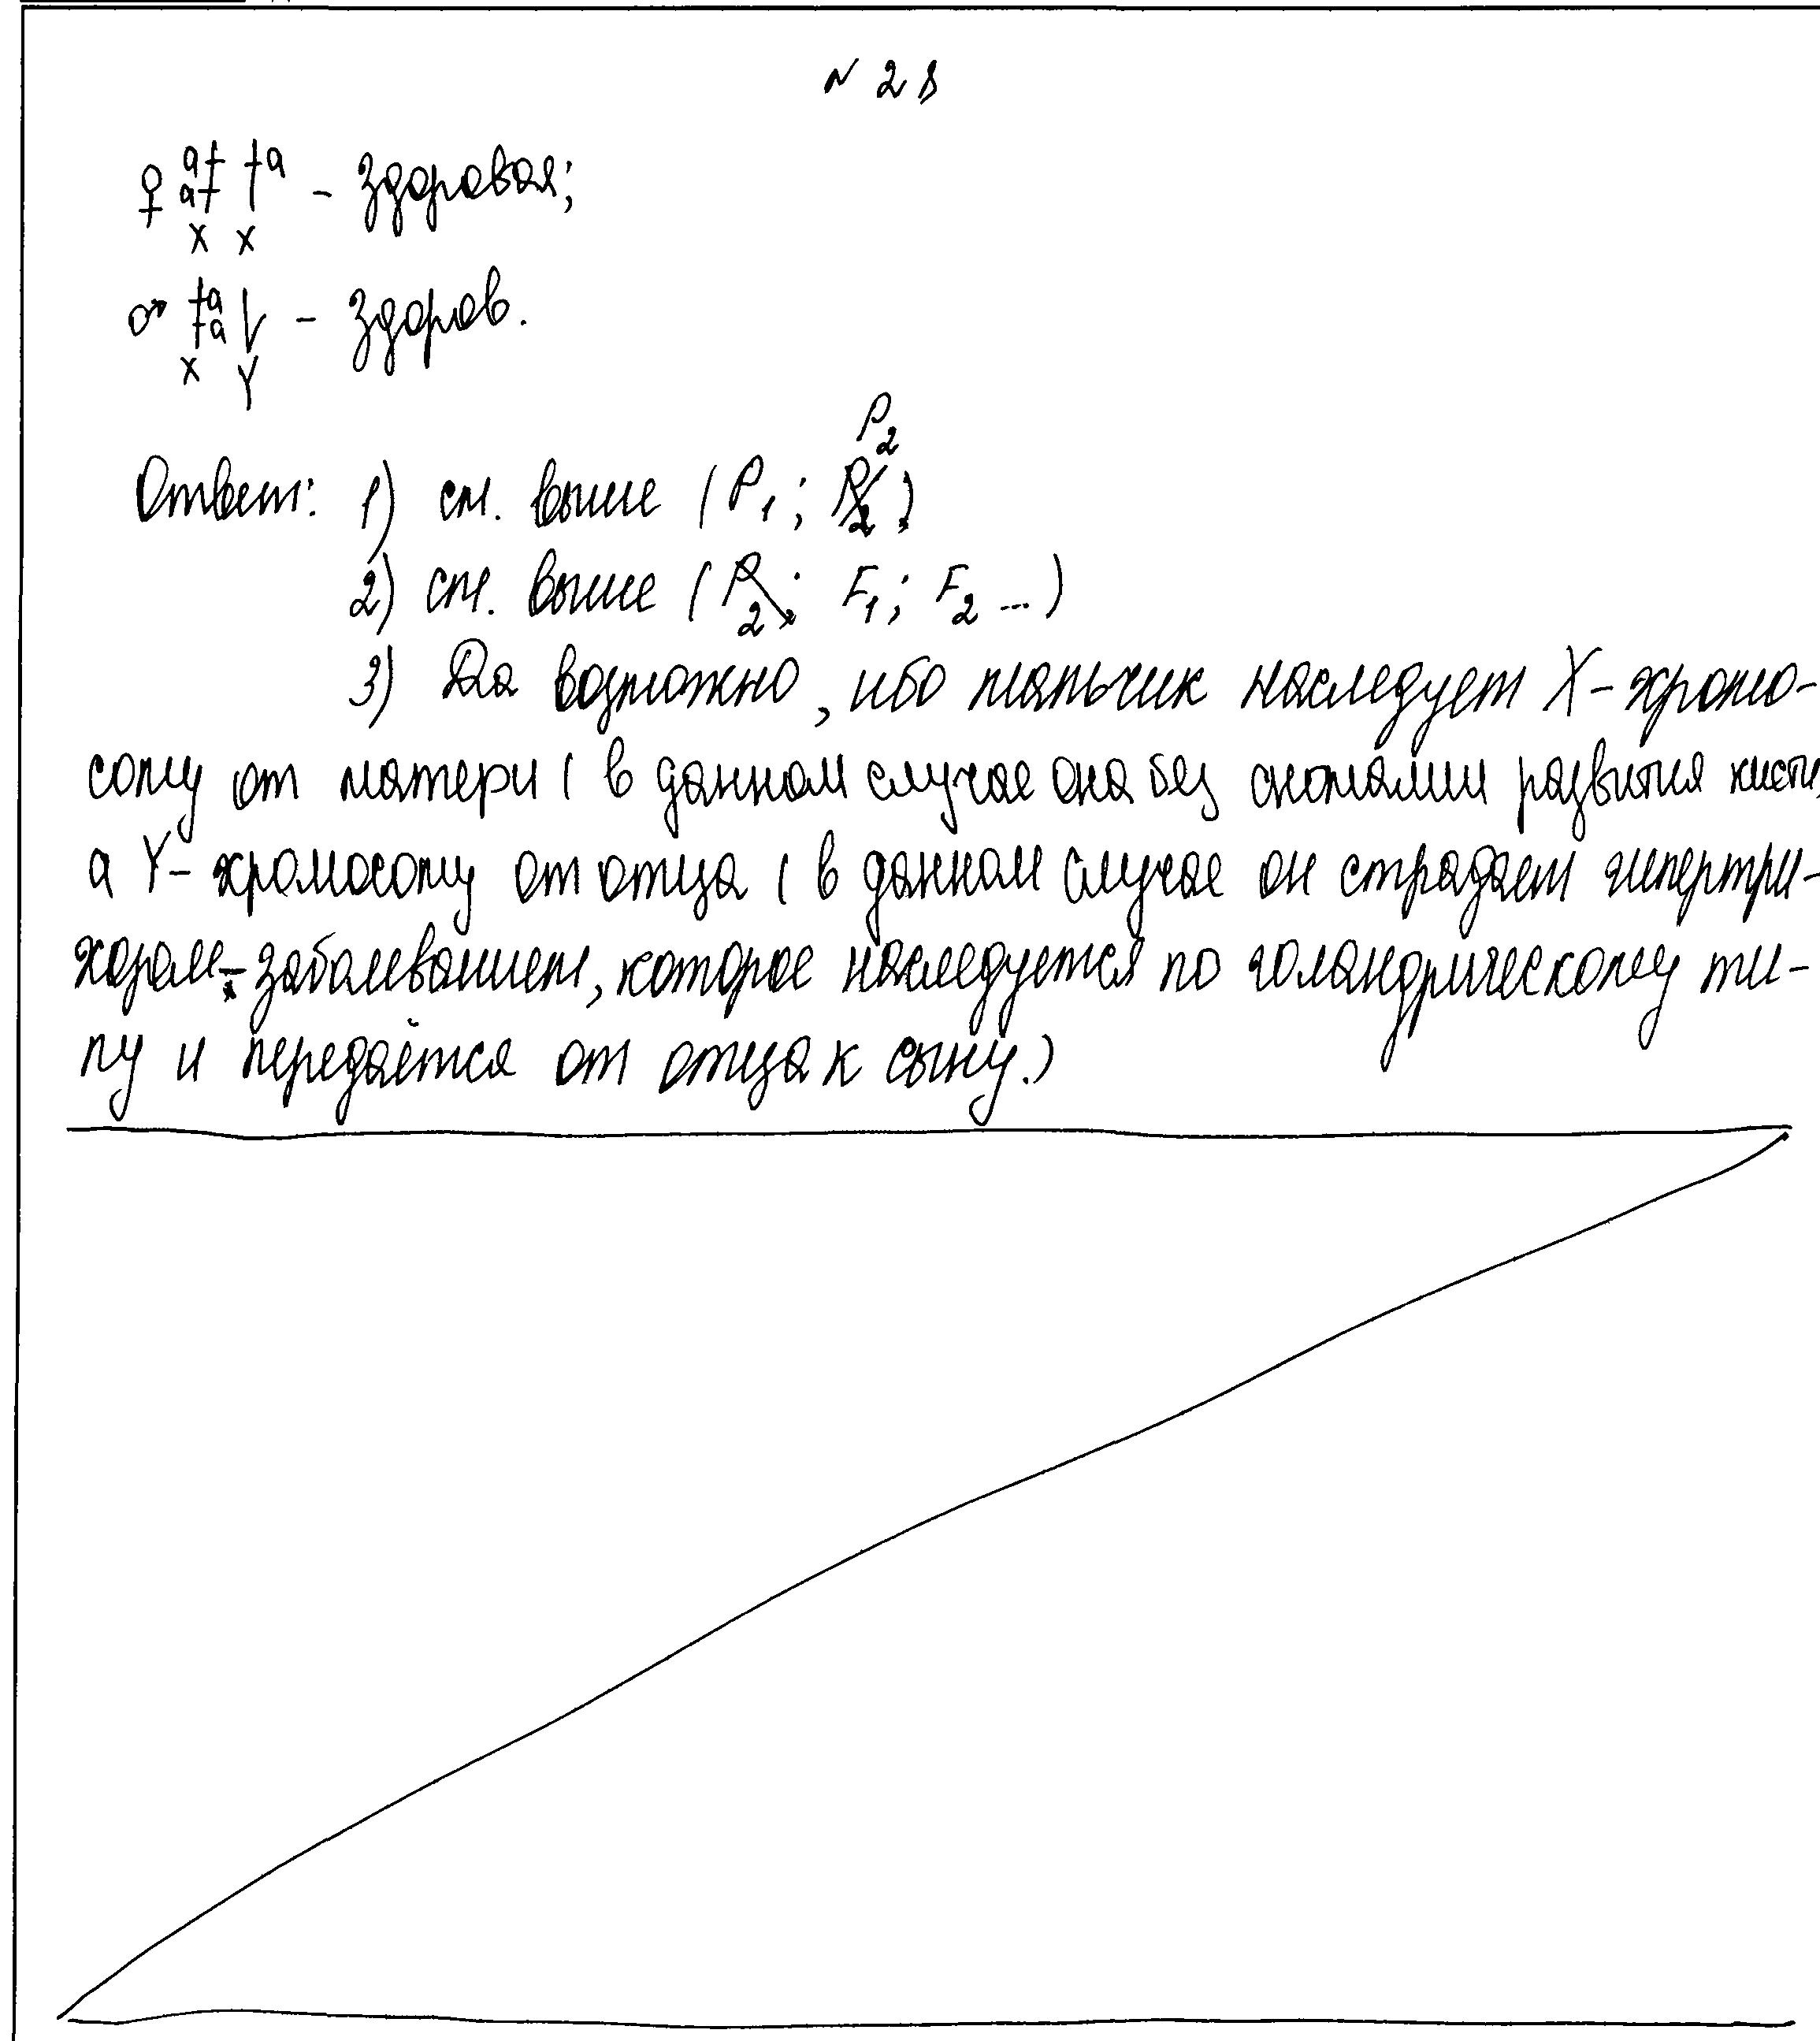 № 28
♀ a a a - здоровая;
X X
♂ a a - здоров.
X Y
P2
Ответ: 1) см. выше (P1; P2)
2) см. выше (P2; F1; F2 ...)
3) Да возможно, ибо мальчик наследует X-хромо-
сому от матери (в данном случае она без аномалии развития кисти,
а Y-хромосому от отца (в данном случае он страдает гипертри-
хозом - заболеванием, которое наследуется по голандрическому ти-
пу и передаётся от отца к сыну.)